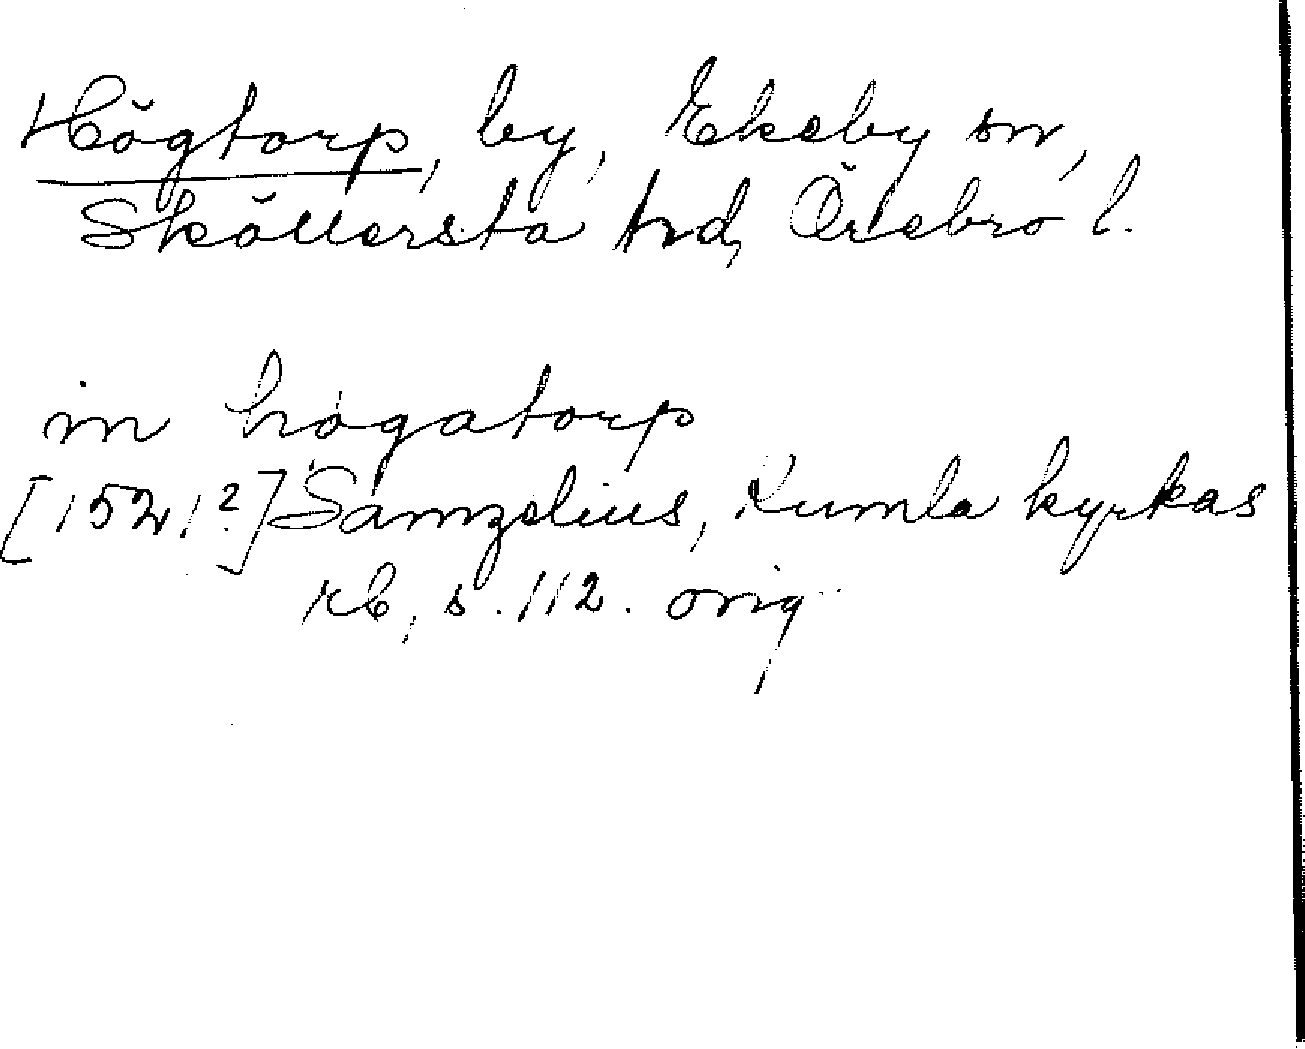 Högtorp, by, Ekeby sn,
Sköllersta hd, Örebro l.
in høgatorp
[1521?] Samzelius, Kumla kyrkas
rb, s. 112. orig.